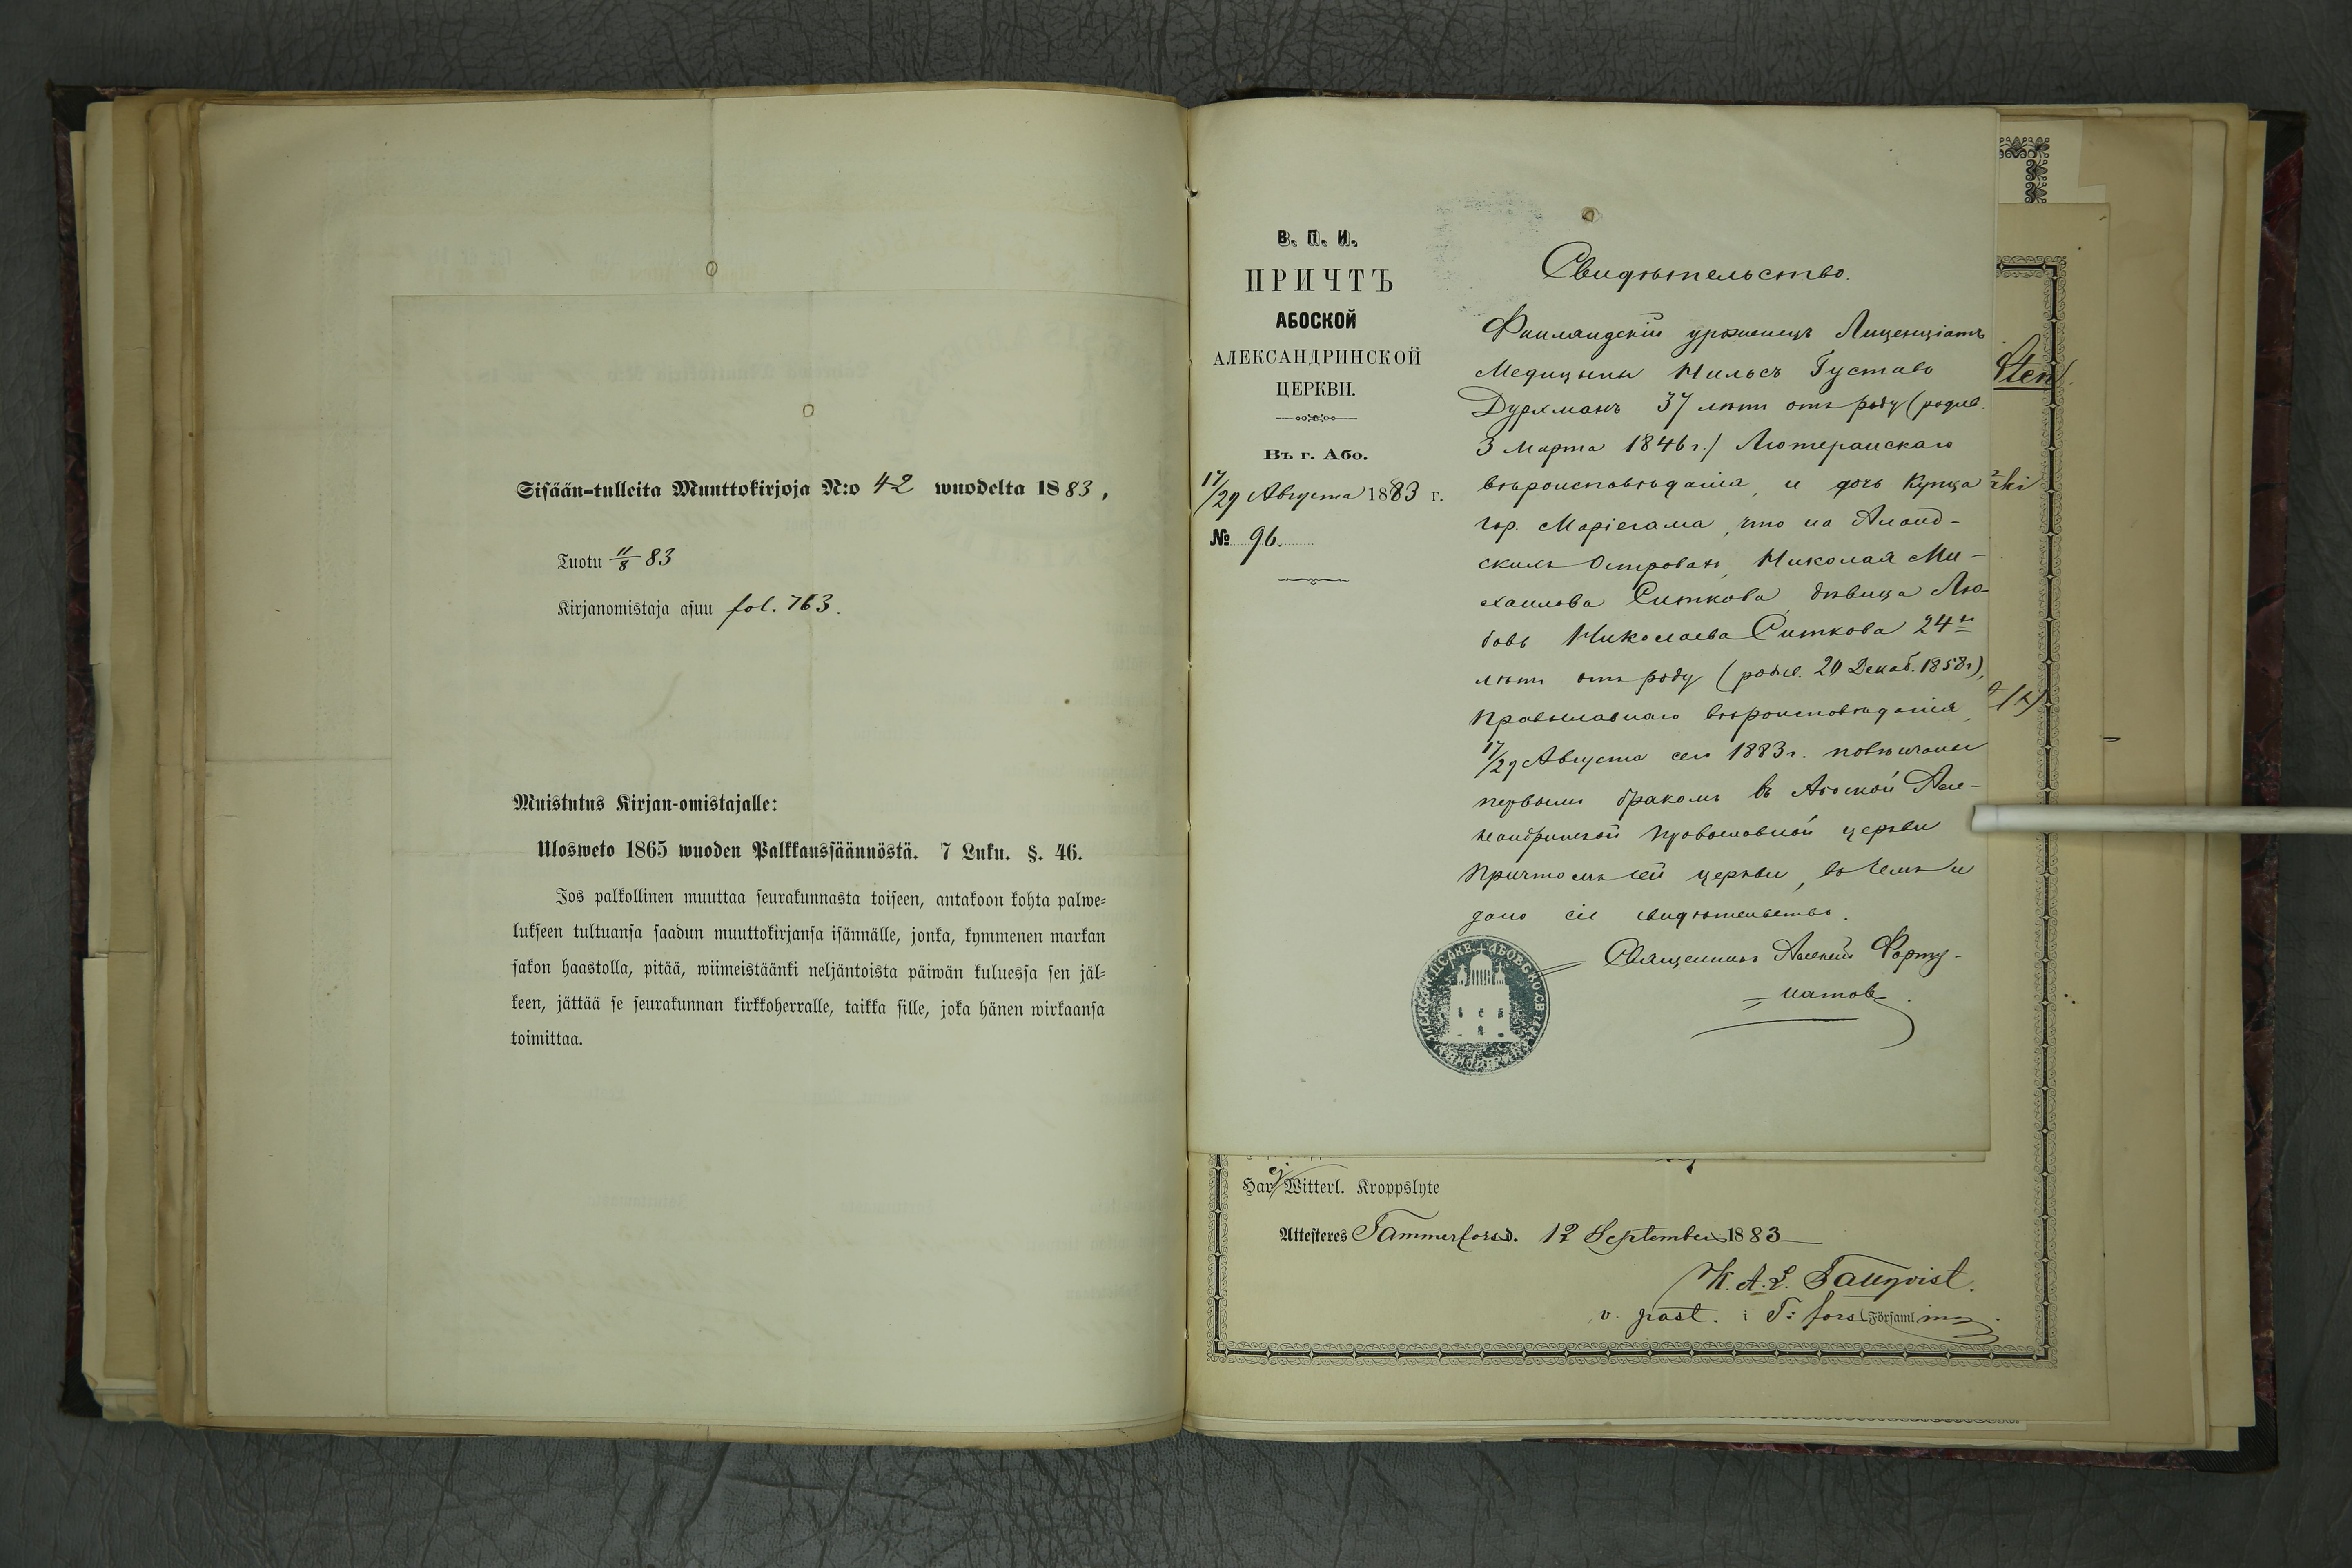 Sisään-tulleita Muuttokirjoja N:o 42 wuodelta 1883,
Tuotu 11/8 83
Kirjanomistaja asuu fol. 763.
Muistutus Kirjan-omistajalle:
Ulosweto 1865 wuoden Palkkaussäännöstä. 7 Luku. §. 46.
Jos palkollinen muuttaa seurakunnasta toiseen, antakoon kohta palwe-
lukseen tultuansa saadun muuttokirjansa isännälle, jonka, kymmenen markan
sakon haastolla, pitää, wiimeistäänki neljäntoista päiwän kuluessa sen jäl-
keen, jättää se seurakunnan kirkkoherralle, taikka sille, joka hänen wirkaansa
toimittaa.
В. П. И.
ПРИЧТЪ
АБОСКОЙ
АЛЕКСАНДРИНСКОЙ
ЦЕРКВИ.
Въ г. Або.
17/29 Августа 1883 г.
№ 96.
Свидѣтельство.
Финляндскій уроженецъ Лиценціатъ
Медицины Нильсъ Густавъ
Дурхманъ 37 лѣтъ отъ роду (родив.
3 Марта 1846 г.) Лютеранскаго
вѣроисповѣданія, и дочь Купца
гор. Маріегама, что на Аланд-
скихъ Островахъ, Николая Ми-
хаилова Ситкова, дѣвица Лю-
бовь Николаева Ситкова 24хъ
лѣтъ отъ роду (родив. 20 Декаб. 1858 г),
Православнаго вѣроисповѣданія,
17/29 Августа сего 1883 г. повѣнчаны
первымъ бракомъ въ Абоской Але-
ксандринской Православной церкви
Причтомъ сей церкви, въ чемъ и
дано сіе свидѣтельство.
Священникъ Алексѣй Форту-
натовъ.
Sten
Har ej Witterl. Kroppslyte
Attesteres Tammerfors d. 12 September 1883
K. A. L. Tallqvist.
v. past. i T:fors Församling.